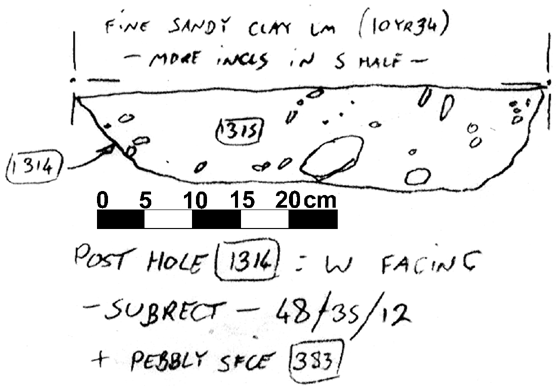 FINE SANDY CLAY LM (10YR34)
- MORE INCLS IN S HALF -
1315
1314
0 5 10 15 20 cm
POST HOLE 1314 : W FACING
- SUBRECT - 48/35/12
+ PEBBLY SFCE 383